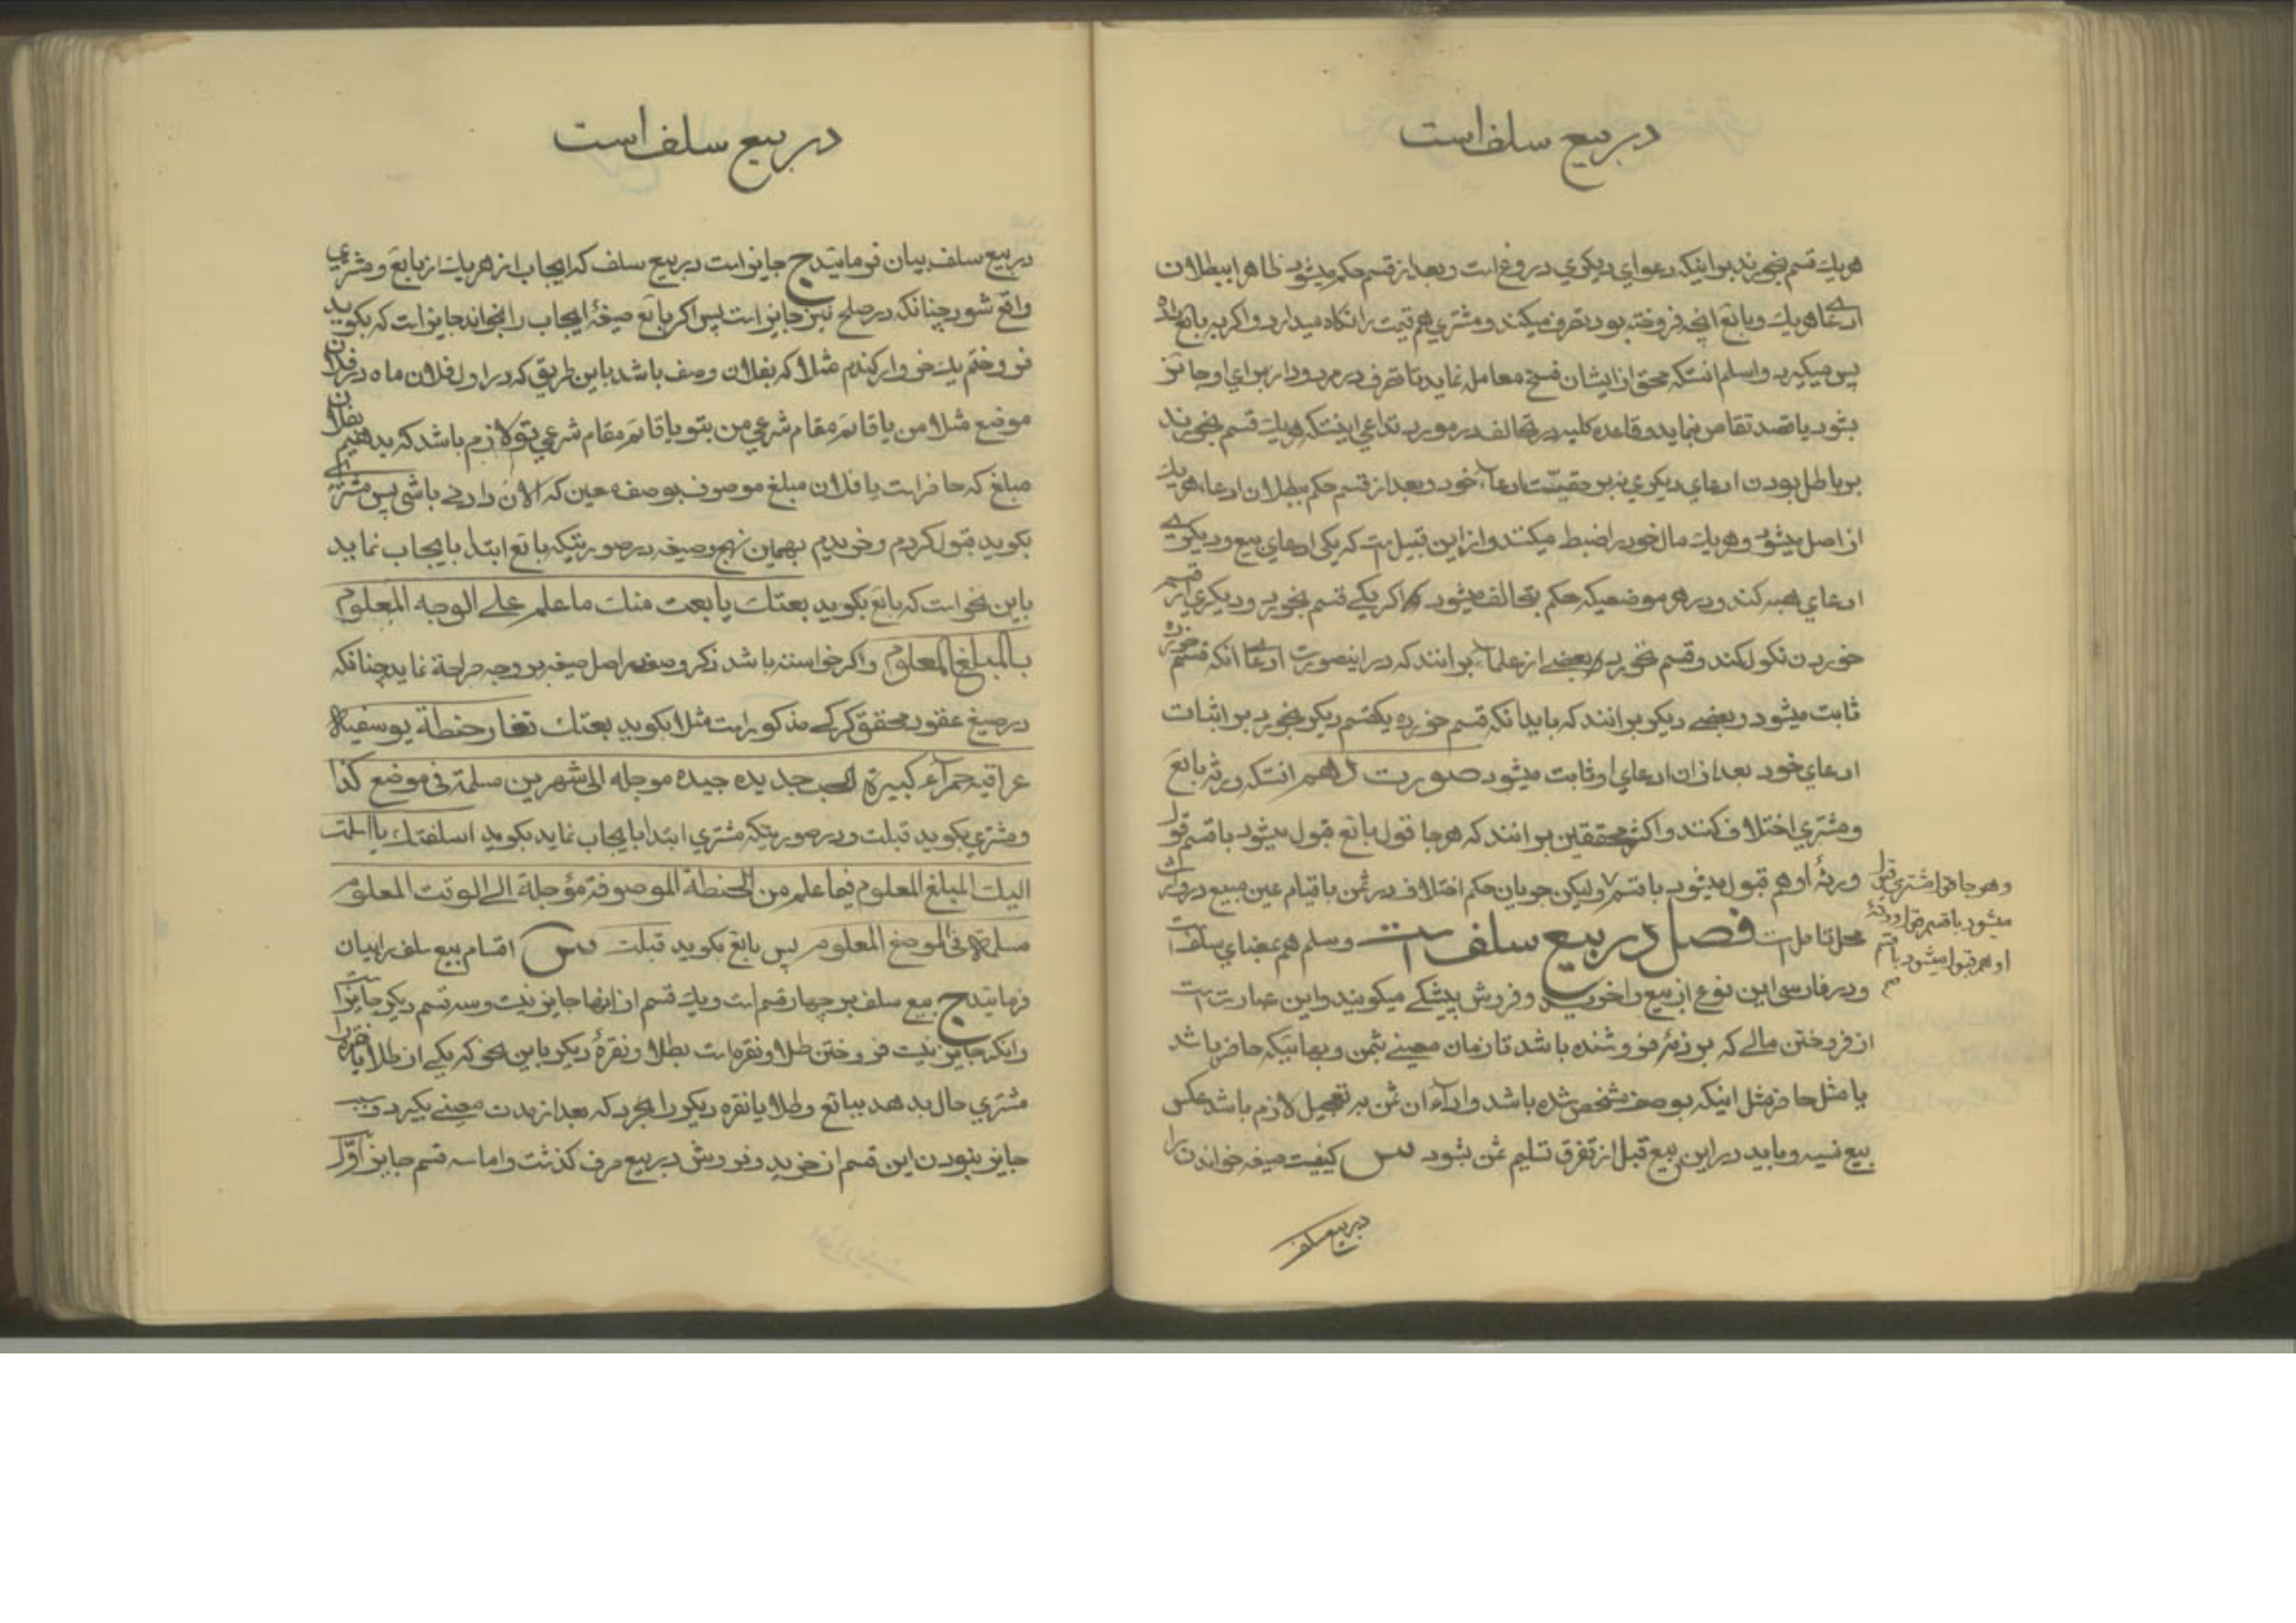 در بیع سلف است
هریك قسم بخورند بر اینکه دعوای دیکری دروغ است و بعد از قسم حکم میشود ظاهرا ببطلان
ادعاء هریك و بایع انچه فروخته بود تصرف میکند و مشتری هم قیمت را نکاه میدارد و اکر به بایع داده
پس میکیرد و اسلم انستکه محق از ایشان فسخ معامله نماید تا تصرف در مردود از برای او جایز
بشود یا قصد تقاص نماید و قاعده کلیه در تحالف در مورد تداعی اینستکه هریك قسم بخورند
بر باطل بودن ادعای دیکری نه بر حقیت ادعاء خود و بعد از قسم حکم ببطلان ادعاء هریك
از اصل میشود و هریك مال خود را ضبط میکنند و از این قبیل است که یکی ادعای بیع و دیکری
ادعای هبه کند و در هر موضعیکه حکم بتحالف میشود اکر یکی قسم بخورد و دیکری از قسم
خوردن نکول کند و قسم نخورد بعضی از علماء بر انند که در اینصورت ادعاء انکه قسم خورده
ثابت میشود و بعضی دیکر بر انند که باید انکه قسم خورده یکقسم دیکر بخورد بر اثبات
ادعای خود بعد از ان ادعای او ثابت میشود صورت دهم انستکه ورثه بایع
و مشتری اختلاف کنند و اکثر محققین بر انند که هر جا قول بایع قبول میشود با قسم قول
ورثهٔ او هم قبول میشود با قسم ولیکن جریان حکم اختلاف در ثمن با قیام عین مبیع در وارث
وهر جا قول مشتری قبول
میشود با قسم قول ورثهٔ
او هم قبول میشود با قسم
م
محل تامل است فصل در بیع سلف است و سلم هم بمعنای سلف است
و در فارسی این نوع از بیع را خرید و فروش پیشکی میکویند و این عبارت است
از فروختن مالی که بر ذمهٔ فروشنده باشد تا زمان معینی بثمن و بهائیکه حاضر باشد
یا مثل حاضر مثل اینکه بوصف مشخص شده باشد و اداء ان ثمن به تعجیل لازم باشد عکس
بیع نسیه و باید در این بیع قبل از تفرق تسلیم ثمن بشود س کیفیت صیغه خواندن را
در بیع سلف
در بیع سلف است
در بیع سلف بیان فرمائید ج جایز است در بیع سلف که ایجاب از هریك از بایع و مشتری
واقع شود چنانکه در صلح نیز جایز است پس اکر بایع صیغهٔ ایجاب را بخواند جایز است که بکوید
فروختم یك خروار کندم مثلا که بفلان وصف باشد باین طریق که در اول فلان ماه در فلان
موضع مثلا من یا قائم مقام شرعی من بتو یا قائم مقام شرعی تو لازم باشد که بدهیم بفلان
مبلغ که حاضر است یا فلان مبلغ موصوف بوصف معین که الان دادنی باشی پس مشتری
بکوید قبول کردم و خریدم بهمین نهج و صیغه در صورتیکه بایع ابتدا بایجاب نماید
باین نحو است که بایع بکوید بعتك یا بعت منك ما علم علی الوجه المعلوم
بالمبلغ المعلوم و اکر خواسته باشد ذکر وصف در اصل صیغه بر وجه صراحة نماید چنانکه
در صیغ عقود محقق کرکی مذکور است مثلا بکوید بعتك تغار حنطة یوسفیة
عراقیة حمراء کبیرة الحب جدیده جیده موجله الی شهرین مسلمة فی موضع کذا
و مشتری بکوید قبلت و در صورتیکه مشتری ابتدا بایجاب نماید بکوید اسلفتك یا اسلمت
الیك المبلغ المعلوم فیما علم من الحنطة الموصوفة مؤجلة الی الوقت المعلوم
مسلمة فی الموضع المعلوم پس بایع بکوید قبلت س اقسام بیع سلف را بیان
فرمائید ج بیع سلف بر چهار قسم است و یك قسم از اینها جایز نیست و سه قسم دیکر جایز است
و انکه جایز نیست فروختن طلا و نقره است بطلا و نقرهٔ دیکر باین نحو که یکی از طلا یا نقره را
مشتری حال بدهد ببایع و طلا یا نقره دیکر را بخرد که بعد از مدت معینی بکیرد و سبب
جایز نبودن این قسم از خرید و فروش در بیع صرف کذشت و اما سه قسم جایز اوّل